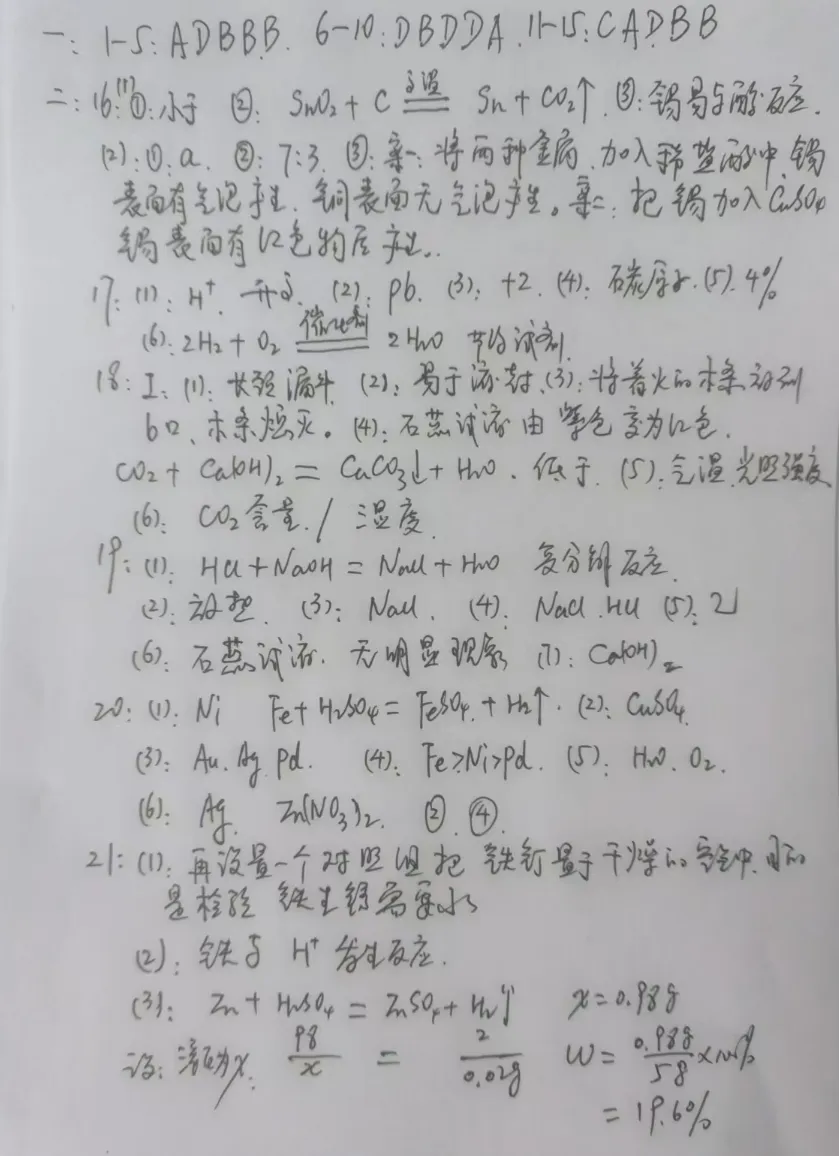 一: 1-5: ADBBB. 6-10: DBDDA. 11-15: CADBB
二: 16: (1) ①: 小于 ②: SnO₂ + C =高温= Sn + CO₂↑. ③: 锡易与酸反应.
(2): ①: a. ②: 7:3. ③: 案一: 将两种金属, 加入稀盐酸中, 锡
表面有气泡产生, 铜表面无气泡产生。案二: 把锡加入CuSO₄
锡表面有红色物质产生.
17: (1): H⁺. 升高. (2): Pb. (3): +2. (4): 石碳原子. (5). 4%
(6): 2H₂ + O₂ =催化剂= 2H₂O 节约试剂.
18: I: (1): 长颈漏斗. (2): 易于液封. (3): 将着火的木条放到
b口, 木条熄灭。 (4): 石蕊试液由紫色变为红色.
CO₂ + Ca(OH)₂ = CaCO₃↓ + H₂O. 低于. (5): 气温, 光照强度
(6): CO₂含量 / 湿度.
19: (1): HCl + NaOH = NaCl + H₂O 复分解反应.
(2): 放热. (3): NaCl. (4): NaCl. HCl (5): 乙
(6): 石蕊试液. 无明显现象 (7): Ca(OH)₂
20: (1): Ni Fe + H₂SO₄ = FeSO₄ + H₂↑. (2): CuSO₄.
(3): Au. Ag. Pd. (4): Fe>Ni>Pd. (5): H₂O. O₂.
(6): Ag. Zn(NO₃)₂. ②. ④.
21: (1): 再设置一个对照组把铁钉置于干燥的空气中, 目的
是检验铁生锈需要水
(2): 铁与H⁺发生反应.
(3): Zn + H₂SO₄ = ZnSO₄ + H₂↑ x = 0.98g
设: 溶质为x. 98/x = 2/0.02g W = 0.98g/5g × 100%
= 19.6%